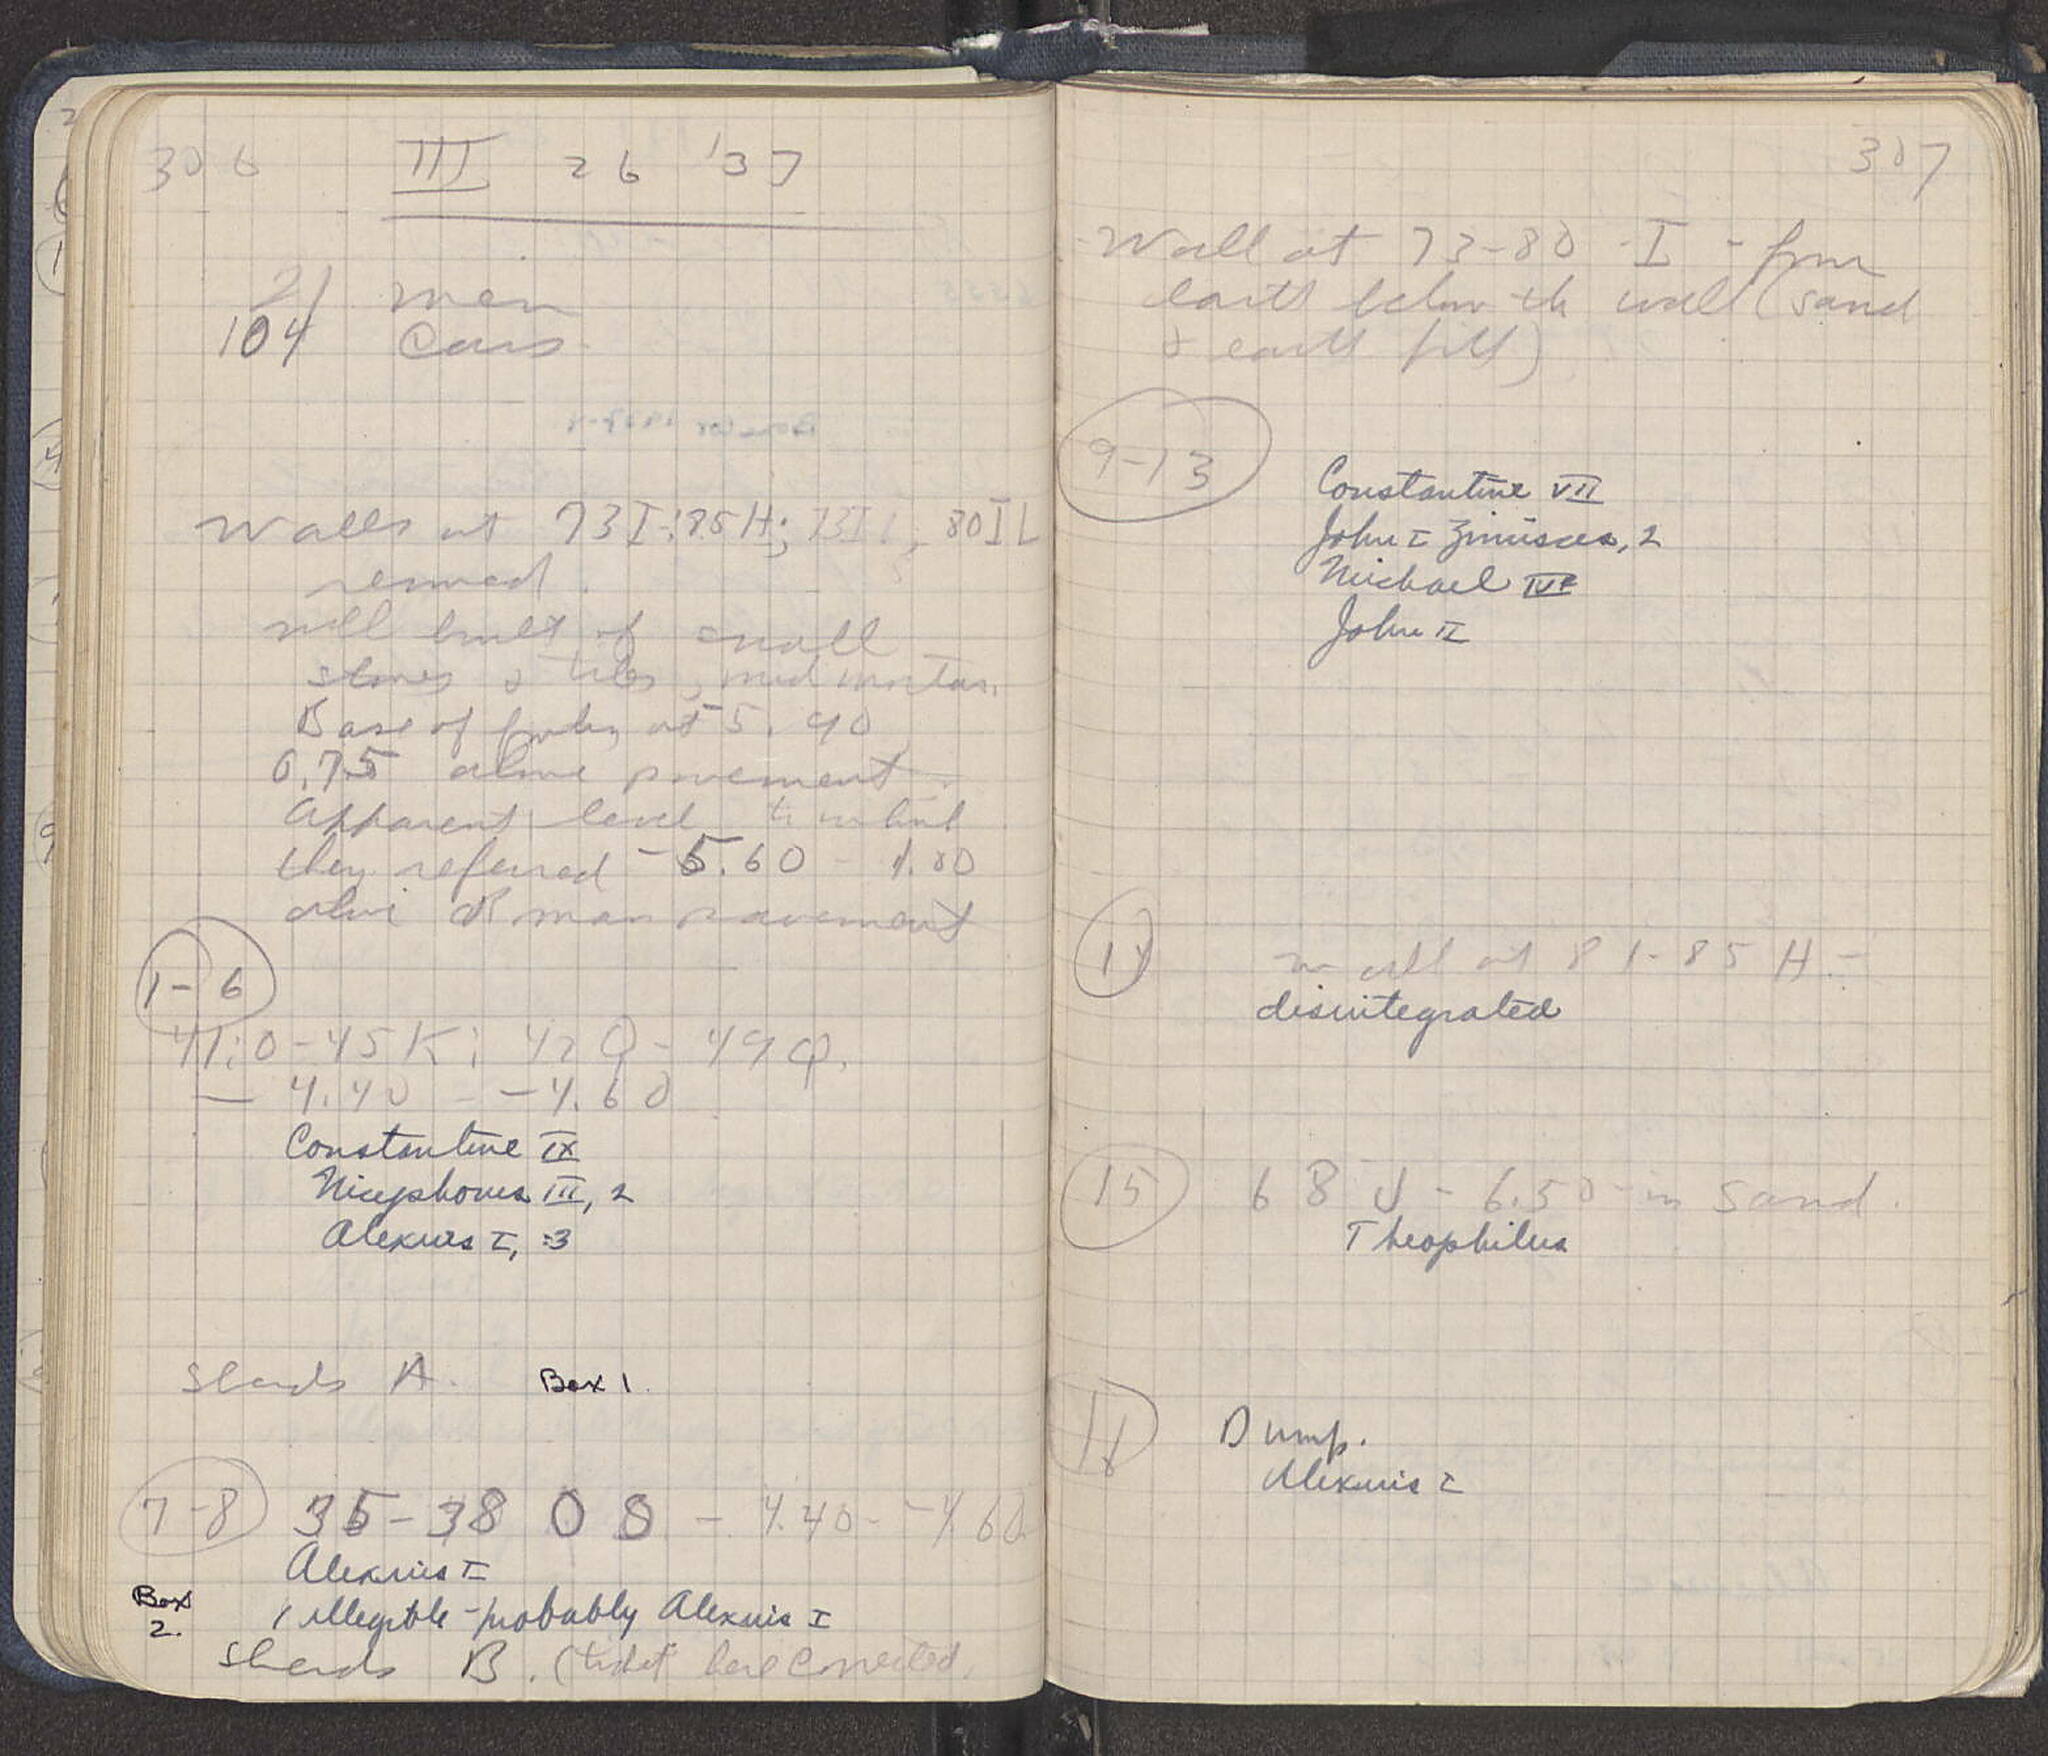 306 III 26 '37
21 men
104 Cars
Walls at 73I-:85H; 73I ; 80IL
removed.
well built of small
stones & tiles, mud mortar.
Base of at 5.90
0,75 above pavement.
Apparent level to which
they referred -5.60 - 1.00
above Roman pavement
1-6
41:0-45K; 42Q-49Q.
- 4.40 - -4.60
Constantine IX
Nicephorus III, 2
Alexius I, 3
Sherds A. Box 1.
7-8 35-38 O S - 4.40 - -4.60
Alexius I
1 illegible-probably Alexius I
Box
2.
Sherds B. (ticket here corrected.
307
Wall at 73-80 -I - from
earth below the wall (sand
& earth fill)
9-13
Constantine VII
John I Zimisces, 2
Michael IV
John II
14 wall at 81-85 H.-
disintegrated
15 68 J - 6.50 - in sand.
Theophilus
Dump.
Alexius I